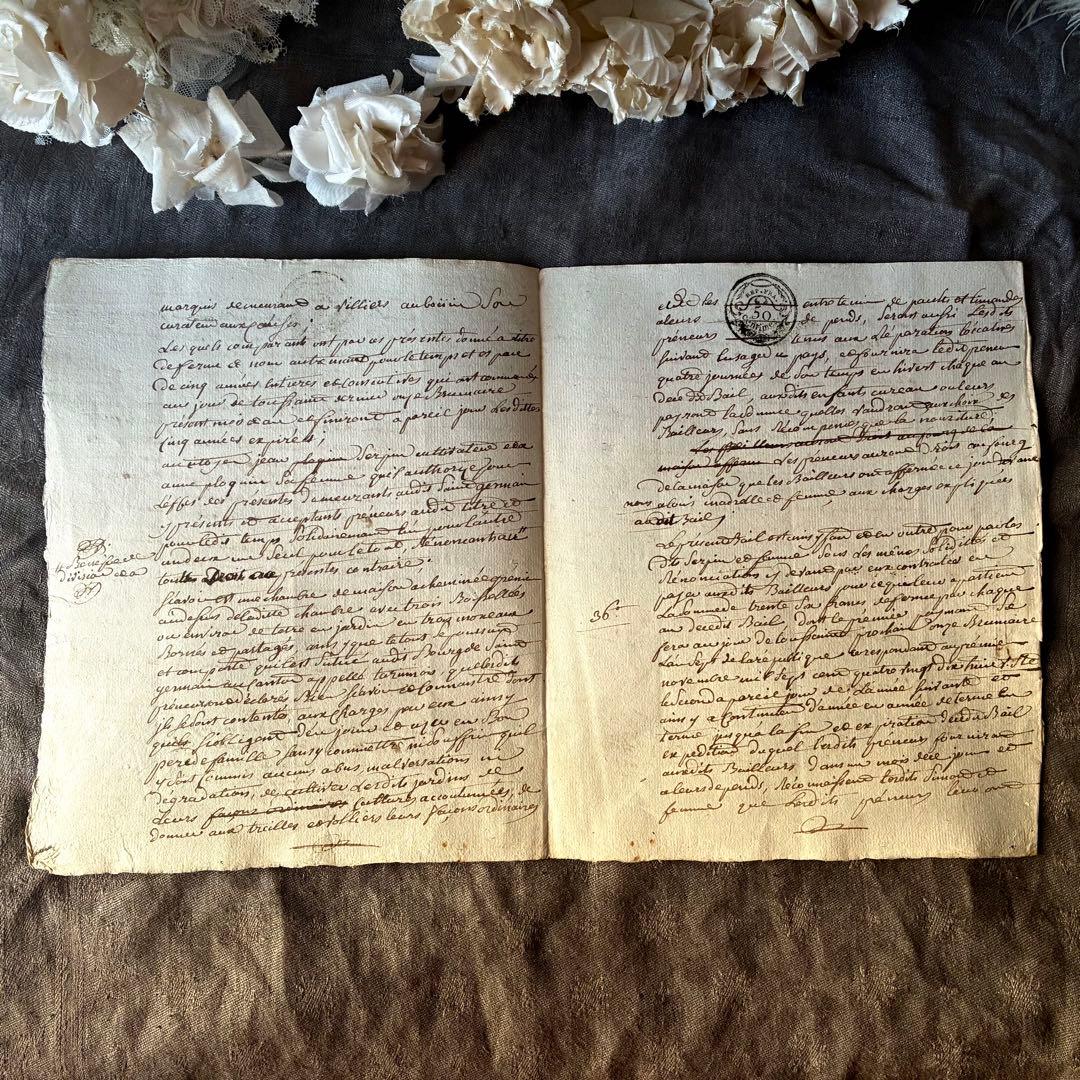 marquis demeurand a Villiers auboccin Son
curateur aux causes;
Les quels comparurant ont par ces présentes donné a titre
de ferme et nom autrement pour le temps et espace
de cinq années entieres et consecutives qui ont commencé
au jour de toussaint dernier onze Brumaire
présent mois d'an et finiront a pareil jour lesdittes
cinq années expirées;
au citoyen jean Serzin cultivateur et a
anne ploquin Sa femme qu'il authorize pour
l'effet des présentes demeurants audit Saint germain
y présents et acceptants preneurs audit titre et
pour ledit temps Solidairement l'un pour l'autre
un deux un Seul pour le tout, Renoncant au
Benefice de
division de la
tout présentes contraire.
Scavoir est une chambre de maison a cheminée grenier
au dessus de laditte chambre avec trois Boisselées
ou environ de terre en jardin en trois morceaux
Bornés et partagés, ainsy que le tout se poursuit
et comporte qui est Situé audit Bourg de Saint
germain au canton appellé que lesdits
preneurs ont déclarés Bien Scavoir et connaistre dont
ils se Sont contentés, aux charges par eux ainsy
qu'ils S'obligent d'en jouir et uzer en Bon
pere de famille Sans y commettre ni Souffrir qu'il
y Soit commis aucuns abus, malversations ni
degradations, de cultiver lesdits jardins de
Leurs cultures accoutumées, de
donner aux treilles et Solliers leurs façons ordinaires
REP. FRA.
50
et de les entretenir de pauls et limandes
aleurs de perds, Seront aussi Lesdits
preneurs tenus aux Réparations locatives
Suivant l'usage du pays, et fournira ledit preneur
quatre journées de Son temps en hivert chaque an
dudit Bail, auxdits enfants cureau ou leurs
pay Sont la commune quelles Vaudront que chose des
Bailleurs, Sans Récompense que la nourriture,
Les preneurs auront droit au fourg
de la maison que les Bailleurs ont affermée ce jour avant
nous a louis cuadralle et femme aux charges expliquées
audit Bail;
Le present Bail est ainsy fait et en outre pour par les
dits Serzin et femme Sous les mêmes Solidités et
Rénonciation cy devant par eux contractés en
payer auxdits Bailleurs pour ce qui leur appartient
36ᶠ
La Somme de trente Six francs de ferme par chaque
an dudit Bail, dont le premier payement Se
fera au jour de toussaint prochain onze Brumaire
L'an Sept de la république correspondant au premier
novembre mil Sept cent quatre vingt dix huit V. Ste
le Second a pareil jour de L'année Suivante et
ainsy a Continuer d'année en année et terme en
terme jusqu'à la fin et expiration dudit Bail
expédition duquel lesdits preneurs fourniront
auxdits Bailleurs dans un mois de ce jour et
a leurs depends, Réconnaissent lesdits Simon et
femme que Lesdits preneurs leur ont